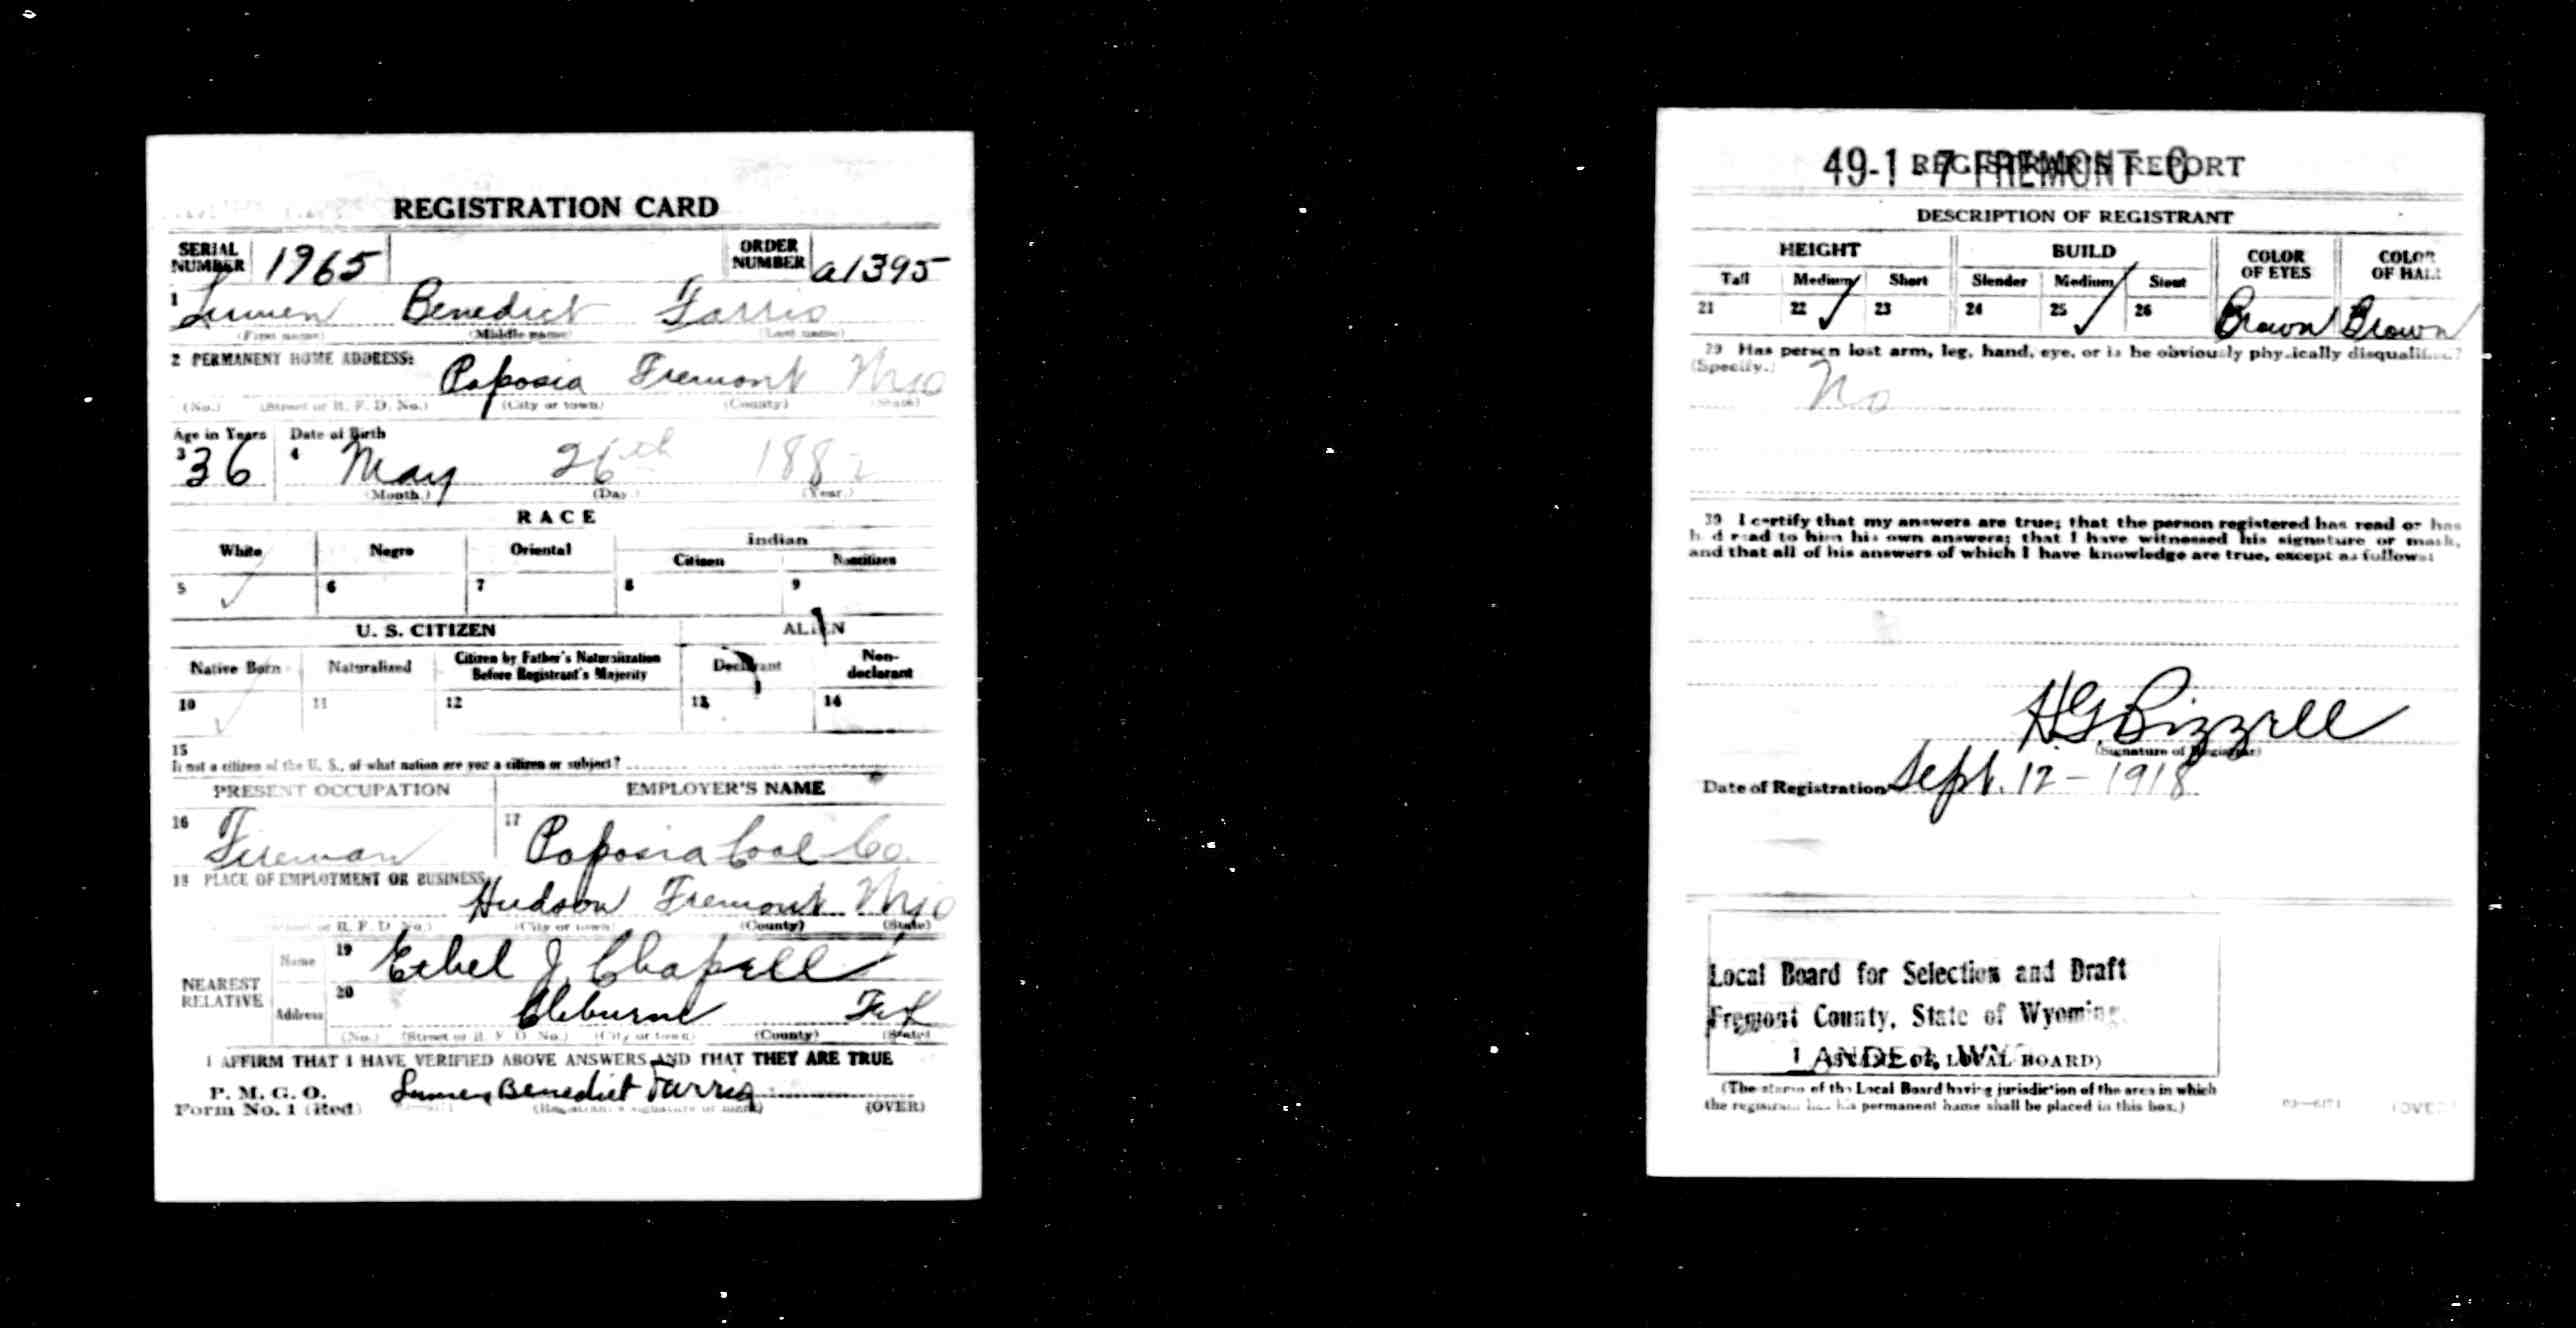 REGISTRATION CARD
SERIAL NUMBER 1965 ORDER NUMBER a1395
1 Lumen Benedict Farris
(First name) (Middle name) (Last name)
2 PERMANENT HOME ADDRESS:
Poposia Fremont Wyo
(No.) (Street or R. F. D. No.) (City or town) (County) (State)
Age in Years Date of Birth
3 36 4 May 26th 1882
(Month.) (Day.) (Year.)
RACE
White Negro Oriental Indian
Citizen Noncitizen
5 ✓ 6 7 8 9
U. S. CITIZEN ALIEN
Native Born Naturalized Citizen by Father's Naturalization Before Registrant's Majority Declarant Non-declarant
10 ✓ 11 12 13 14
15
If not a citizen of the U. S., of what nation are you a citizen or subject?
PRESENT OCCUPATION EMPLOYER'S NAME
16 Fireman 17 Poposia Coal Co.
18 PLACE OF EMPLOYMENT OR BUSINESS:
Hudson Fremont Wyo
or R. F. D. No.) (City or town) (County) (State)
NEAREST RELATIVE Name 19 Ethel J. Chapell
Address 20 Cleburne Tex
(No.) (Street or R. F. D. No.) (City or town) (County) (State)
I AFFIRM THAT I HAVE VERIFIED ABOVE ANSWERS AND THAT THEY ARE TRUE
P. M. G. O.
Form No. 1 (Red) Lumen Benedict Farris
(Registrant's signature or mark) (OVER)
49-1-7 FREMONT-C
REGISTRAR'S REPORT
DESCRIPTION OF REGISTRANT
HEIGHT BUILD COLOR OF EYES COLOR OF HAIR
Tall Medium Short Slender Medium Stout
21 22 ✓ 23 24 25 ✓ 26 Brown Brown
29 Has person lost arm, leg, hand, eye, or is he obviously physically disqualified?
(Specify.) No
30 I certify that my answers are true; that the person registered has read or has
had read to him his own answers; that I have witnessed his signature or mark,
and that all of his answers of which I have knowledge are true, except as follows:
H.G. Bizzell
(Signature of Registrar)
Date of Registration Sept. 12 - 1918
Local Board for Selection and Draft
Fremont County, State of Wyoming,
LANDER, WYO.
(STAMP OF LOCAL BOARD)
(The stamp of the Local Board having jurisdiction of the area in which
the registrant has his permanent home shall be placed in this box.)
(OVER)